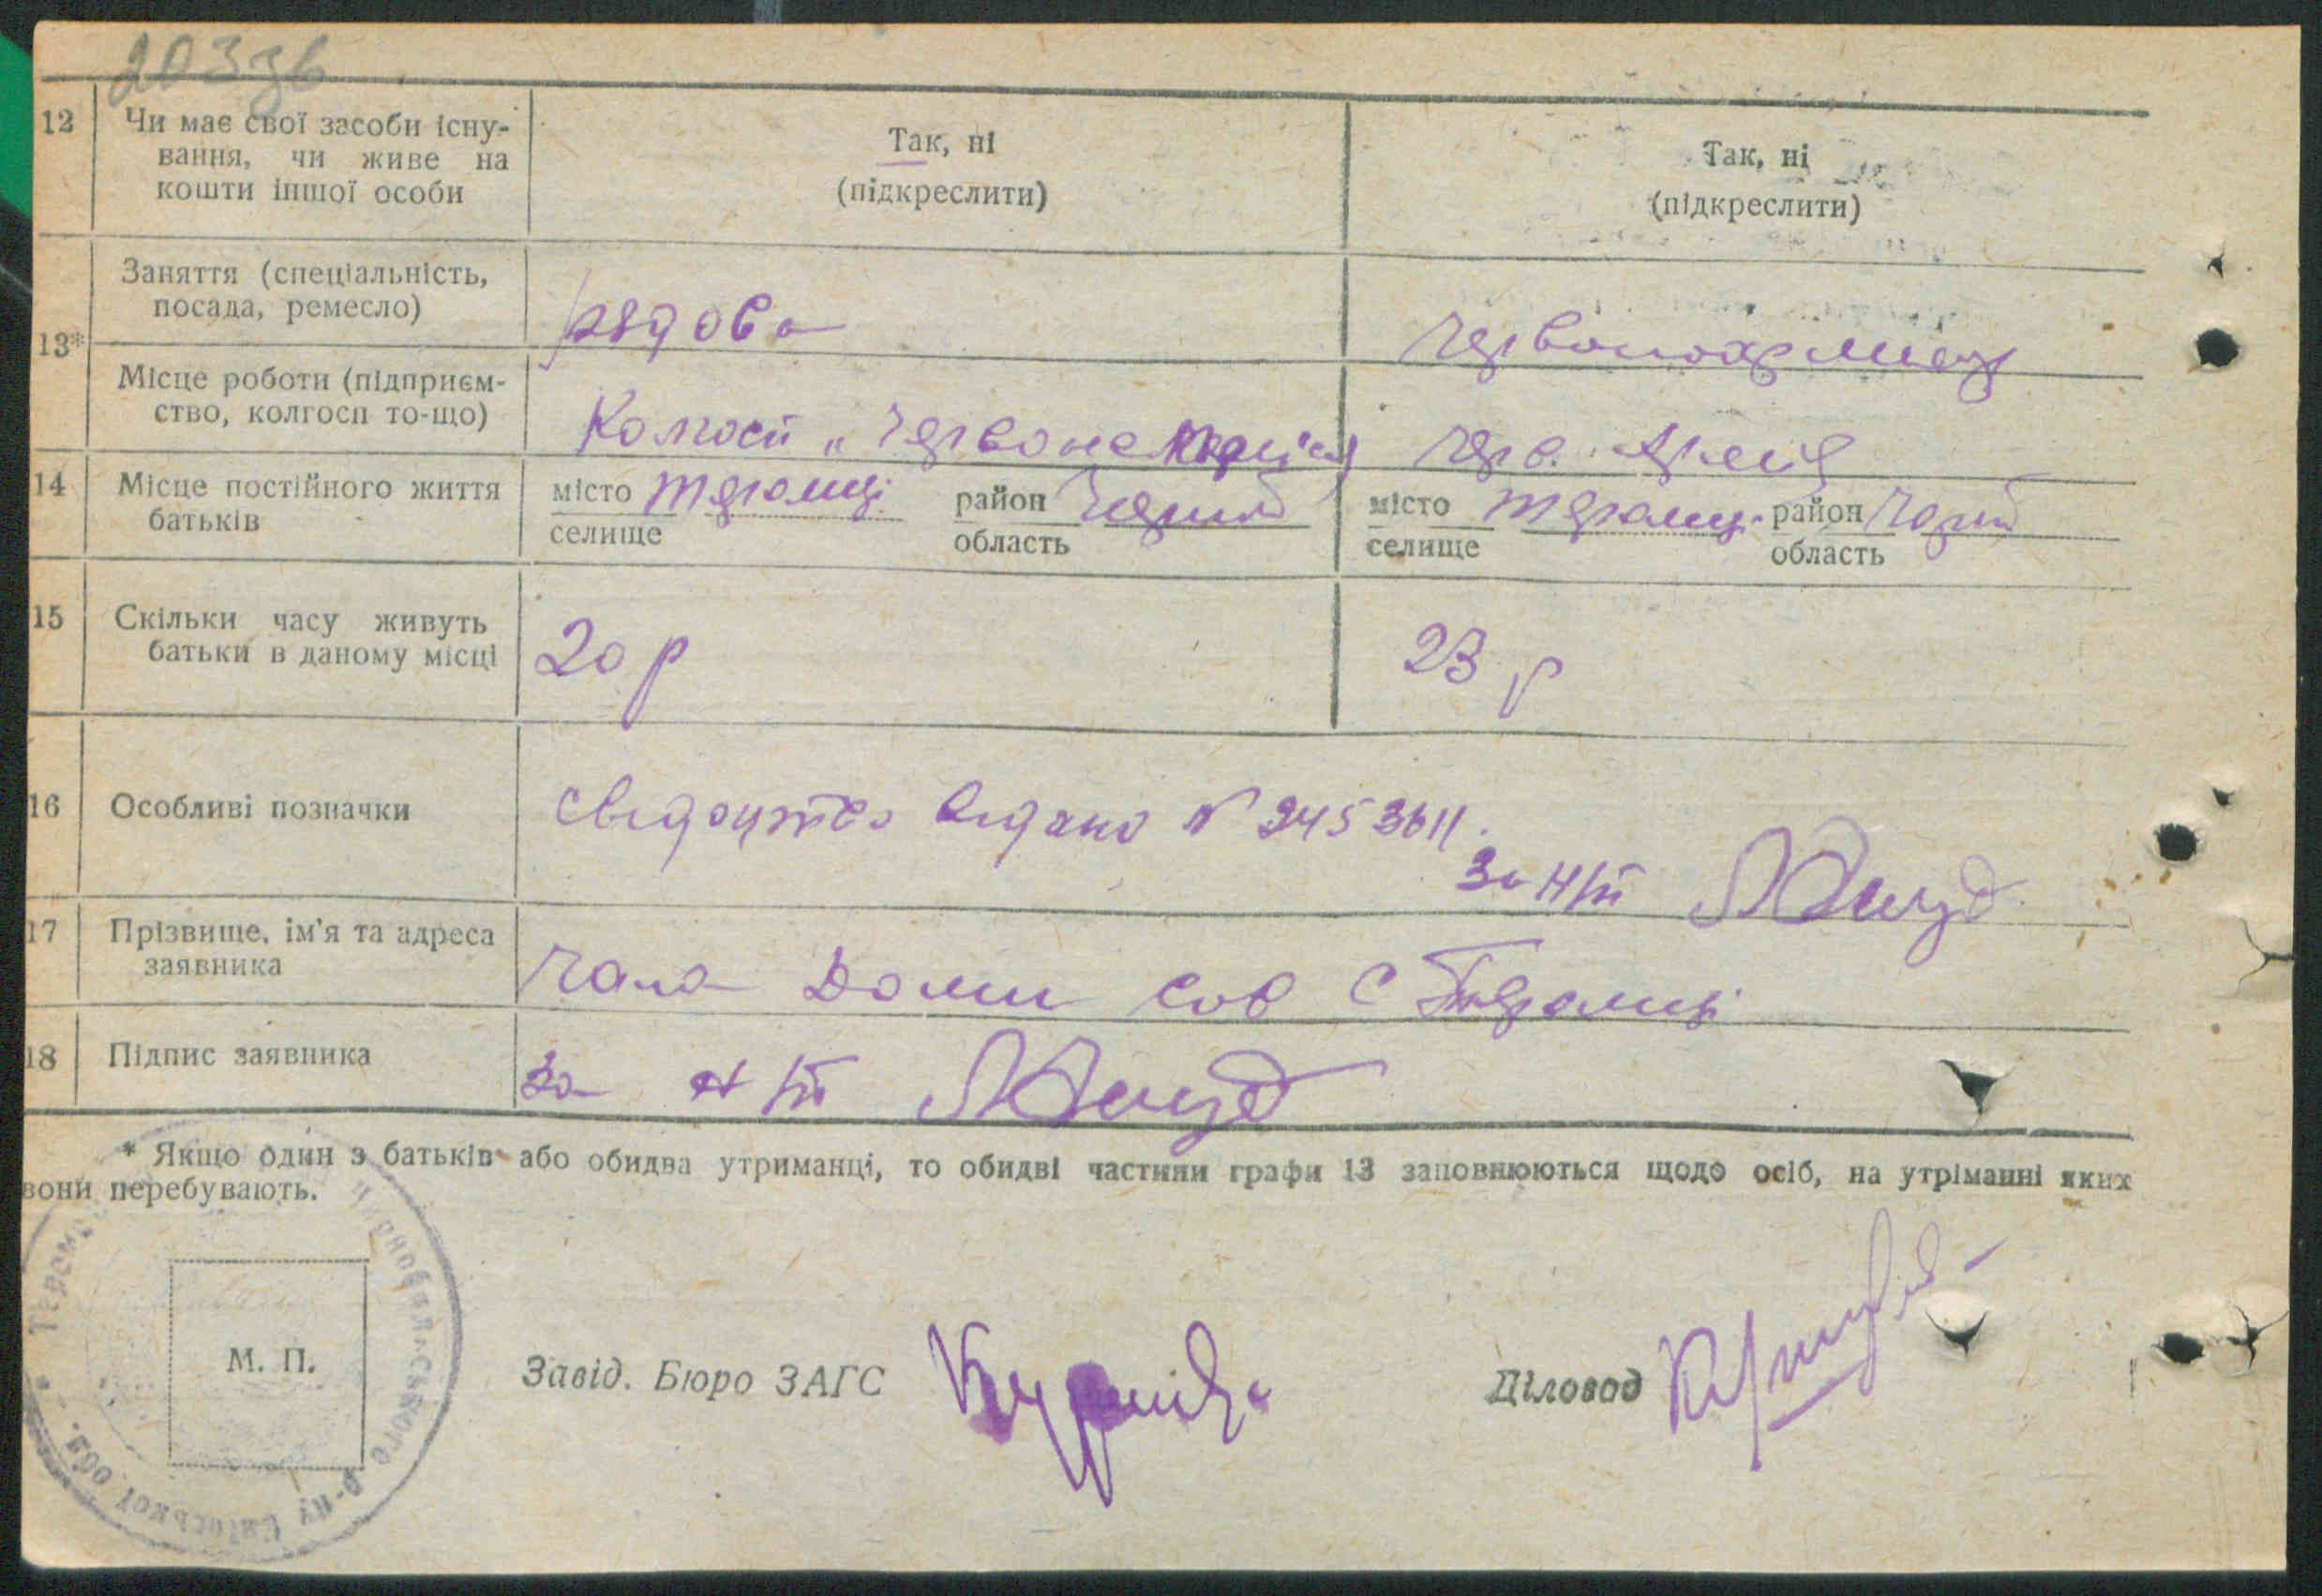 203зв
12 Чи має свої засоби існу-
вання, чи живе на
кошти іншої особи
Так, ні
(підкреслити)
Так, ні
(підкреслити)
13*
Заняття (спеціальність,
посада, ремесло)
рядова
Червоноармиец
Місце роботи (підприєм-
ство, колгосп то-що)
Колгосп „Червоне
Черв. Армія
14 Місце постійного життя
батьків
місто Теремці район Чорноб
селище область
місто Теремці район Чорноб
селище область
15 Скільки часу живуть
батьки в даному місці
20 р
23 р
16 Особливі позначки
свідоцтво видано №
За н/п
17 Прізвище, ім'я та адреса
заявника
с Теремці
18 Підпис заявника
За н/п
* Якщо один з батьків або обидва утриманці, то обидві частини графи 13 заповнюються щодо осіб, на утріманні яких
вони перебувають.
Чорнобильського р-ну Київської обл.
М. П.
Завід. Бюро ЗАГС
Діловод